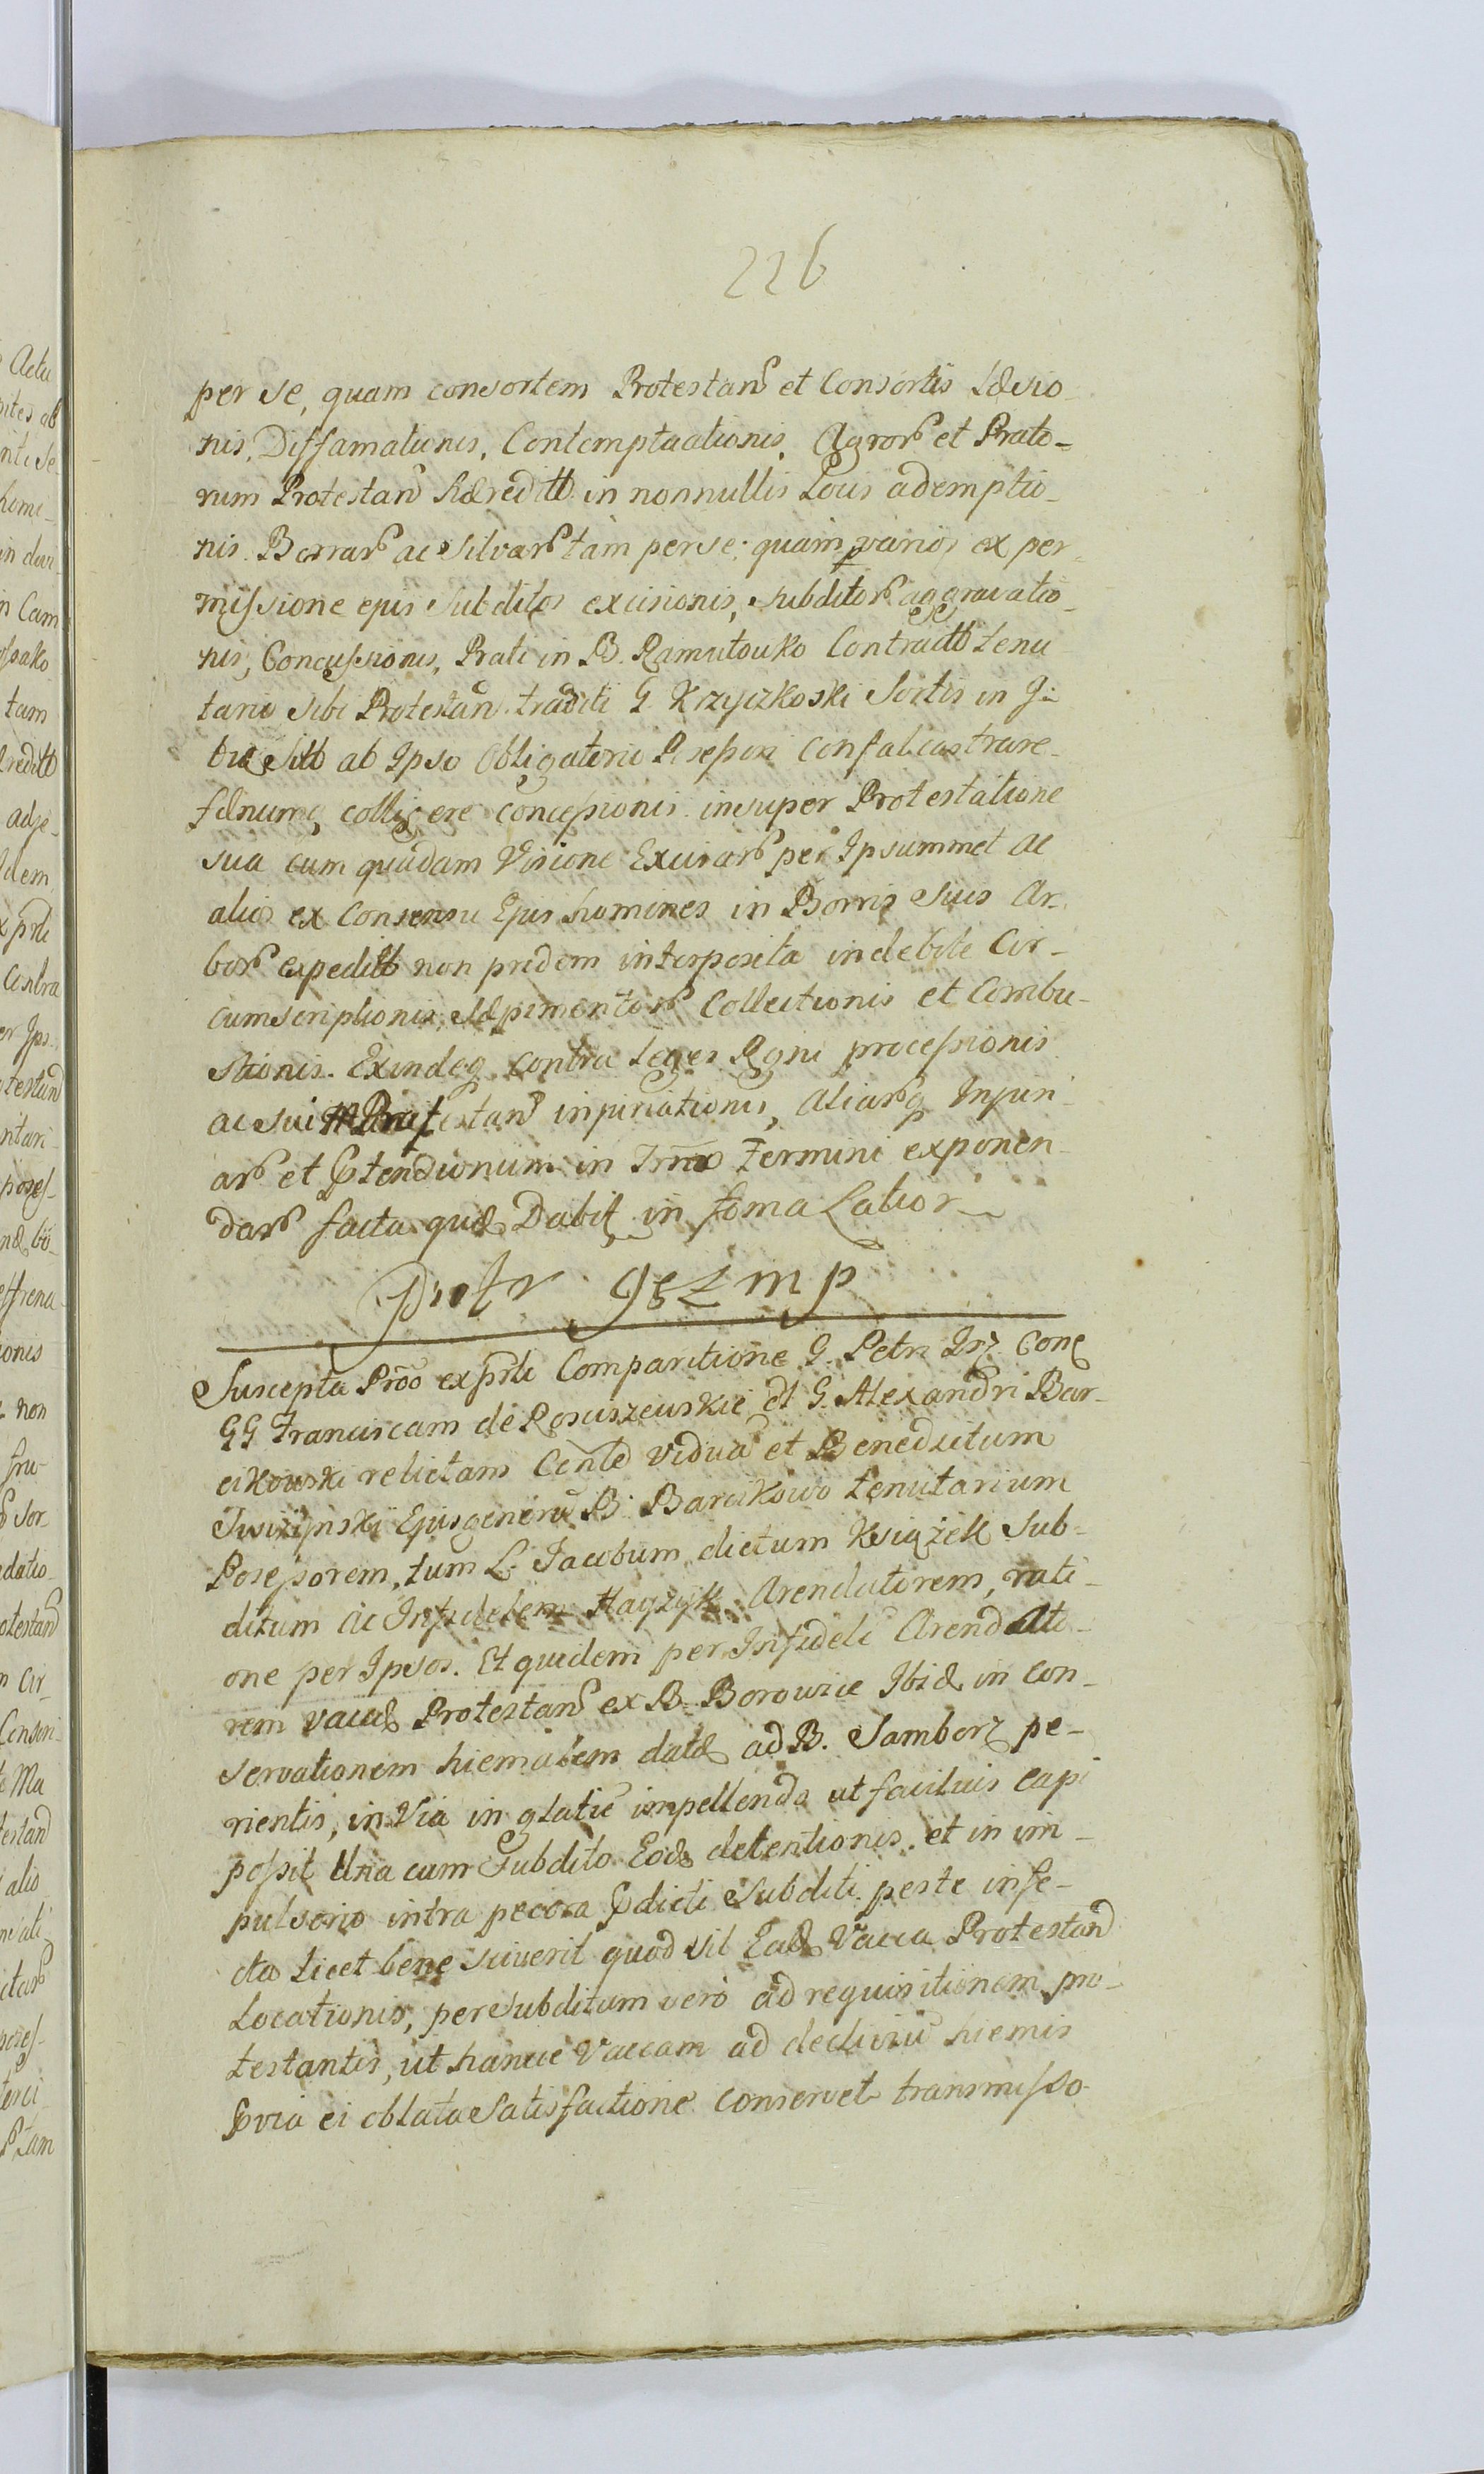 226
per se, quam consortem Protestan et Consortis Læsio
nis, Diffamationis, Contemptaationis, Agror et Prato-
rum Protestan Hæreditt in nonnullis Locis ademptio-
nis. Borrar ac Silvar tam per se, quam varios ex per-
missione ejus Subditos excisionis, subditor aggravatio-
nis, Concussionis, Prati in B. Ramutowko Contractt tenu
tario sibi Protestan traditi G. Krzyczkoski Sortis in
ab Ipso Obligatorio Possessori confalcastrare
fænumq colligere concessionis insuper Protestatione
sua cum quadam Visione Excisar per Ipsummet ac
alios ex Consensu Ejus homines in Borris Suis Ar-
bor expeditt non pridem interposita indebite Cir-
cumscriptionis, Sæpimentor Collectionis et Combu-
stionis. Exindeq contra Leges Rgni processionis
ac sui Protestan injuriationis, Aliarq Injuri-
ar et Ptensionum in Trmo Termini exponen-
dar facta quæ Dabit in foma Latior

Suscepta Proo ex prte Comparitione G. Petri Irz Conc
GG Franciscam de Rosciszewskie et G. Alexandri Bar-
cikowski relictam Cente Vidua et Benedictum
Ejus generu B. Barcikowo tenutarium
Possessorem, tum L. Jacobum dictum Książek Sub-
ditum ac Infidelem Arendatorem, rati-
one per Ipsos. Et quidem per Infideli Arendato-
rem vaccæ Protestan ex B. Borowice Ibid in con-
servationem hiemalem datæ ad B. Samborz pe-
rientis, in Via in glatie impellenda ut facilius capi
possit Una cum Subdito Eod detentionis et in im-
pulsorio intra pecora Pdicti Subditi peste infe-
cta licet bene sciverit quod sit Ead Vacca Protestan
Locationis, per Subditum vero ad requisitionem pro-
testantis, ut hancce Vaccam ad decliviu hiemis
Pvia ei oblata Satisfactione conservet transmisso